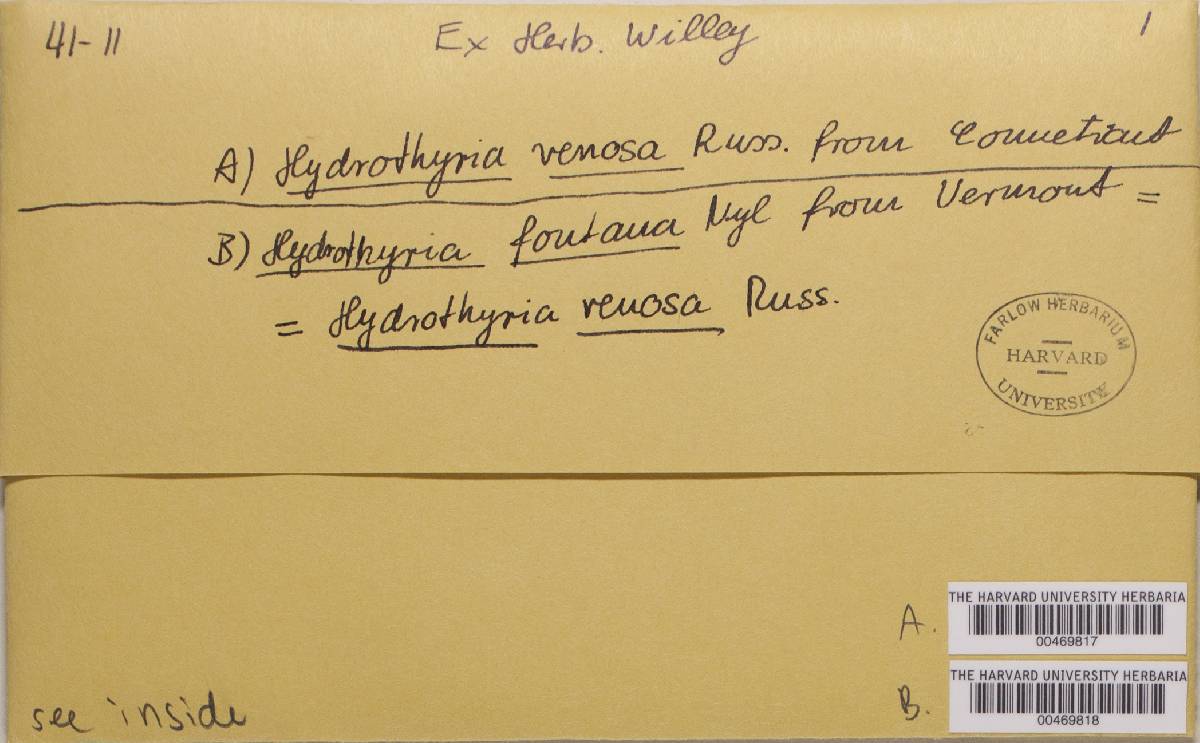 41-11 Ex Herb. Willey 1
A) Hydrothyria venosa Russ. from Connecticut
B) Hydrothyria fontana Nyl from Vermont =
= Hydrothyria venosa Russ.
FARLOW HERBARIUM
HARVARD
UNIVERSITY
THE HARVARD UNIVERSITY HERBARIA
A.
00469817
THE HARVARD UNIVERSITY HERBARIA
B.
00469818
see inside